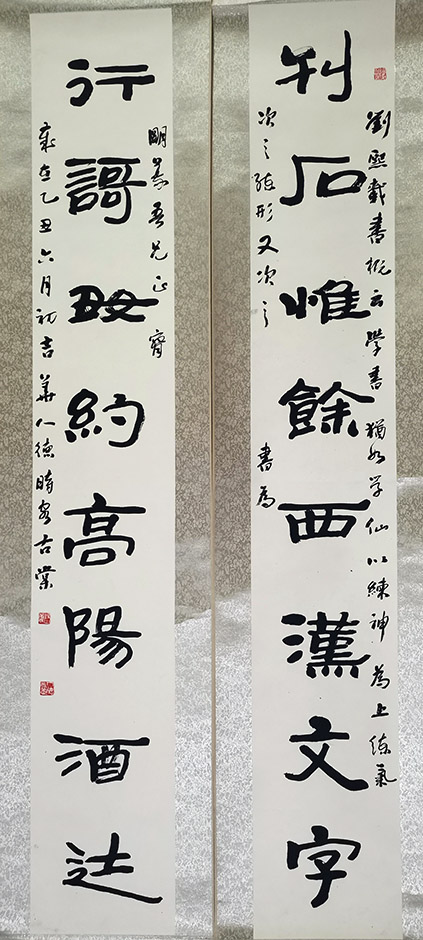 刋石惟餘西漢文字
劉熙載書概云學書猶如学仙以練神為上練氣
次之練形又次之
書為
明義吾兄正
行謌敢約高陽酒徒
歲在乙丑六月初吉華人德時客古棠